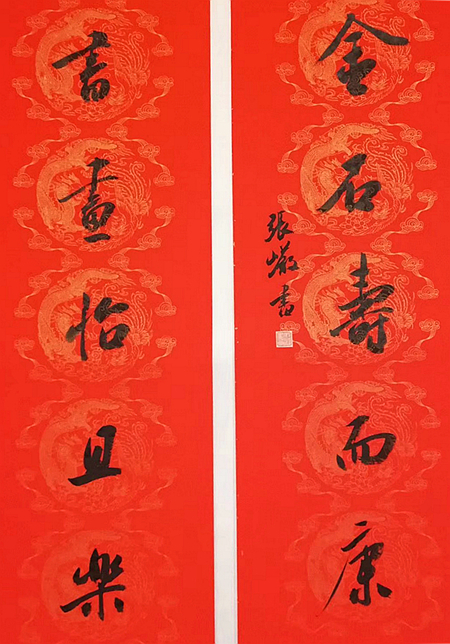 金石壽而康
張書
書畫怡且樂